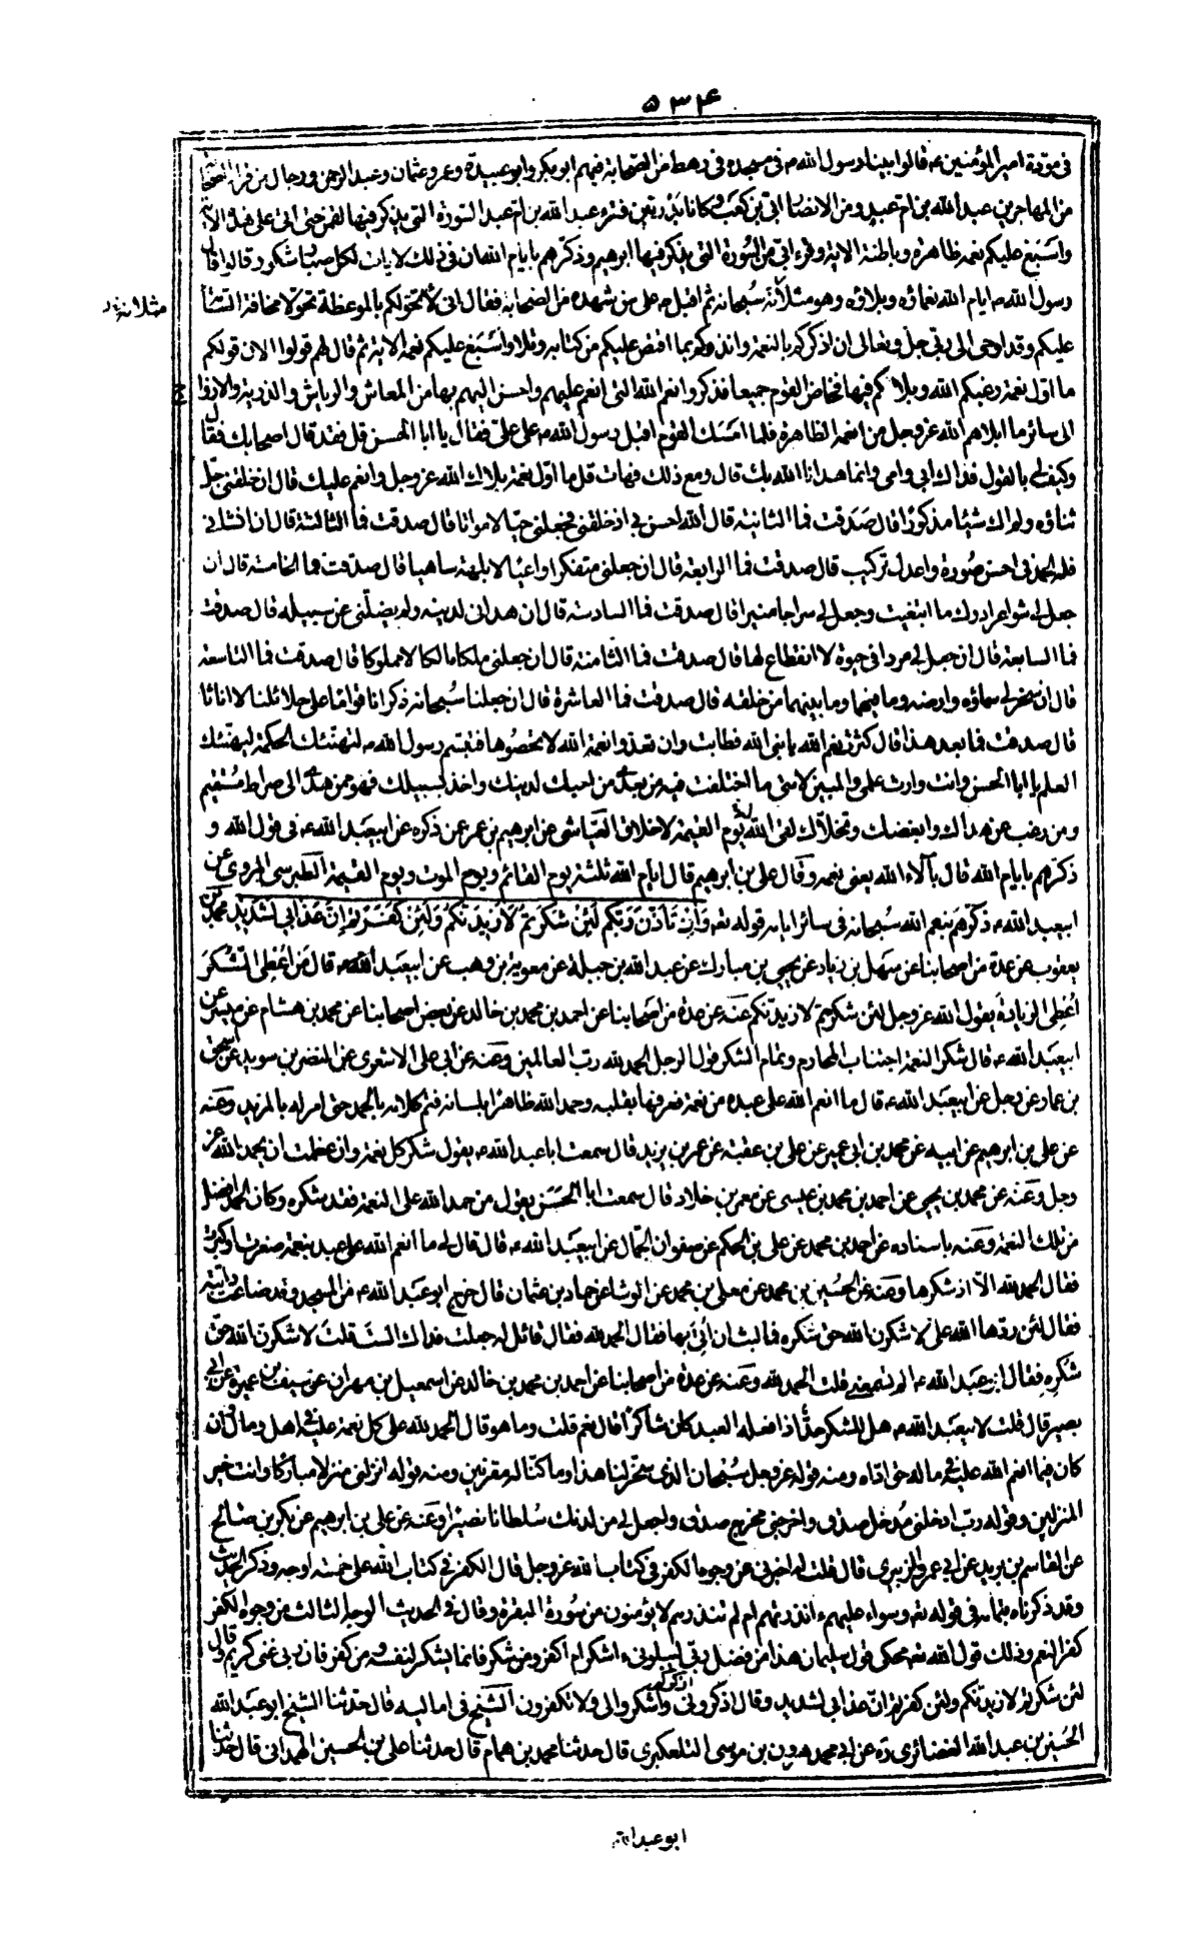 ٥٣٤
في مودة امير المؤمنين ع قالوا بينا رسول الله ص في مسجده في رهط من الصحابة فيهم ابو بكر وابو عبيدة وعمر وعثمان وعبد الرحمن ورجال من قراء الصحابة
من المهاجرين عبد الله بن ام عبد ومن الانصار ابي بن كعب وكانا بدريين فقرء عبد الله بن ام عبد السورة التي يذكر فيها لقمن حتى اتى على هذه الاية
واسبغ عليكم نعمه ظاهرة وباطنة الاية وقرء ابي من السورة التي يذكر فيها ابرهيم وذكرهم بايام الله ان في ذلك لايات لكل صبار شكور قالوا قال
رسول الله ص ايام الله نعماؤه وبلاؤه وهو مثلاته سبحانه ثم اقبل ص على من شهده من الصحابة فقال اني لاتخولكم بالموعظة تخولا مخافة السئامة
عليكم وقد اوحى الى ربي جل وتعالى ان اذكركم بالنعمة وانذركم بما اقتص عليكم من كتابه وتلا واسبغ عليكم نعمه الاية ثم قال لهم قولوا الان قولكم
ما اول نعمة رغبكم الله وبلاكم فيها فخاض القوم جميعا فذكروا نعم الله التي انعم عليهم واحسن اليهم بها من المعاش والرياش والذرية والازواج
الى سائر ما ابلاهم الله عز وجل من انعمه الظاهرة فلما امسك القوم اقبل رسول الله ص على علي فقال يا ابا الحسن قل فقد قال اصحابك فقال
وكيف لي بالقول فداك ابي وامي وانما هدانا الله بك قال ومع ذلك فهات قل ما اول نعمة بلاك الله عز وجل وانعم عليك قال ان خلقني جل
ثناؤه ولم اك شيئا مذكورا قال صدقت فما الثانية قال الله احسن بي اذ خلقني فجعلني حيا لا مواتا قال صدقت فما الثالثة قال ان انشاني
فله الحمد في احسن صورة واعدل تركيب قال صدقت فما الرابعة قال ان جعلني متفكرا واعيا لا بلهة ساهيا قال صدقت فما الخامسة قال ان
جعل لي شواعر ادرك ما ابتغيت وجعل لي سراجا منيرا قال صدقت فما السادسة قال ان هداني لدينه ولم يضلني عن سبيله قال صدقت
فما السابعة قال ان جعل لي مردا في حيوة لا انقطاع لها قال صدقت فما الثامنة قال ان جعلني ملكا مالكا لا مملوكا قال صدقت فما التاسعة
قال ان سخر لي سماؤه وارضه وما فيهما وما بينهما من خلقه قال صدقت فما العاشرة قال ان جعلنا سبحانه ذكرانا قواما على حلائلنا لا اناثا
قال صدقت فما بعد هذا قال كثرت نعم الله يا نبي الله فطابت وان تعدوا نعمة الله لا تحصوها فتبسم رسول الله ص لتهنئك الحكمة ليهنئك
العلم يا ابا الحسن وانت وارث علمي والمبين لامتي ما اختلفت فيه من بعدي من احبك لدينك واخذ بسبيلك فهو ممن هدي الى صراط مستقيم
ومن رغب عن هداك وابغضك وتخلاك لقى الله يوم القيمة لا خلاق له العياشي عن ابرهيم بن عمر عن ذكره عن ابيعبد الله ع في قول الله و
ذكرهم بايام الله قال بآلاء الله يعني بنعمه وقال علي بن ابرهيم قال ايام الله ثلثة يوم القائم ويوم الموت ويوم القيمة الطبرسي المروي عن
ابيعبد الله ع ذكرهم بنعم الله سبحانه في سائر ايامه قوله تع واذ تاذن ربكم لئن شكرتم لازيدنكم ولئن كفرتم ان عذابي لشديد محمد بن
يعقوب عن عدة من اصحابنا عن سهل بن زياد عن يحيى بن مبارك عن عبد الله بن جبلة عن معوية بن وهب عن ابيعبد الله ع قال من اعطى الشكر
اعطى الزيادة يقول الله عز وجل لئن شكرتم لازيدنكم عنه عن عدة من اصحابنا عن احمد بن محمد بن خالد عن بعض اصحابنا عن محمد بن هشام عن ميسر عن
ابيعبد الله ع قال شكر النعمة اجتناب المحارم وتمام الشكر قول الرجل الحمد لله رب العالمين وعنه عن أبي علي الاشعري عن النضر بن سويد عن اسحق
بن عمار عن رجل عن ابيعبد الله ع قال ما انعم الله على عبده من نعمة فعرفها بقلبه وحمد الله ظاهرا بلسانه فتم كلامه بالحمد حتى امر له بالمزيد وعنه
عن علي بن ابرهيم عن ابيه عن محمد بن ابي عمير عن علي بن عقبة عن عمر بن يزيد قال سمعت ابا عبد الله ع يقول شكر كل نعمة وان عظمت ان يحمد الله عز
وجل وعنه عن محمد بن يحيى عن احمد بن محمد بن عيسى عن معمر بن خلاد قال سمعت ابا الحسن يقول من حمد الله على النعمة فقد شكره وكان الحمد افضل
من تلك النعمة وعنه باسناده عن احمد بن محمد عن علي بن الحكم عن صفوان الجمال عن ابيعبد الله ع قال قال لي ما انعم الله على عبد بنعمة صغرت او كبرت
فقال الحمد لله الا ادى شكرها وعنه عن الحسين بن محمد عن معلى بن محمد عن الوشا عن حماد بن عثمان قال خرج ابو عبد الله ع من المسجد وقد ضاعت دابته
فقال لئن ردها الله علي لاشكرن الله حق شكره فما لبث ان أتي بها فقال الحمد لله فقال قائل له جعلت فداك الست قلت لاشكرن الله حق
شكره فقال ابو عبد الله ع الم تسمعني قلت الحمد لله وعنه عن عدة من اصحابنا عن احمد بن محمد بن خالد عن اسمعيل بن مهران عن سيف بن عميرة عن ابي
بصير قال قلت لابيعبد الله ع هل للشكر حد اذا فعله العبد كان شاكرا قال نعم قلت وما هو قال الحمد لله على كل نعمة عليه في اهل ومال وان
كان فيما انعم الله عليه في ماله حق اداه ومنه قوله عز وجل سبحان الذي سخر لنا هذا وما كنا له مقرنين ومنه قوله انزلني منزلا مباركا وانت خير
المنزلين وقوله رب ادخلني مدخل صدق واخرجني مخرج صدق واجعل لي من لدنك سلطانا نصيرا وعنه عن علي بن ابرهيم عن بكر بن صالح
عن القاسم بن بريد عن ابي عمرو الزبيري قال قلت له اخبرني عن وجوه الكفر في كتاب الله عز وجل قال الكفر في كتاب الله على خمسة اوجه وذكر الحديث
وقد ذكرناه بتمامه في قوله تع وسواء عليهم ءانذرتهم ام لم تنذرهم لا يؤمنون من سورة البقرة وقال في الحديث الوجه الثالث من وجوه الكفر
كفر النعم وذلك قول الله تع يحكي قول سليمان هذا من فضل ربي ليبلوني ءاشكر ام اكفر ومن شكر فانما يشكر لنفسه ومن كفر فان ربي غني كريم وقال
لئن شكرتم لازيدنكم ولئن كفرتم ان عذابي لشديد وقال اذكروني اذكركم واشكروا لي ولا تكفرون الشيخ في اماليه قال حدثنا الشيخ ابو عبد الله
الحسين بن عبد الله الغضائري ره عن ابي محمد هرون بن موسى التلعكبري قال حدثنا محمد بن همام قال حدثنا علي بن الحسين الهمداني قال حدثنا
ابو عبد الله